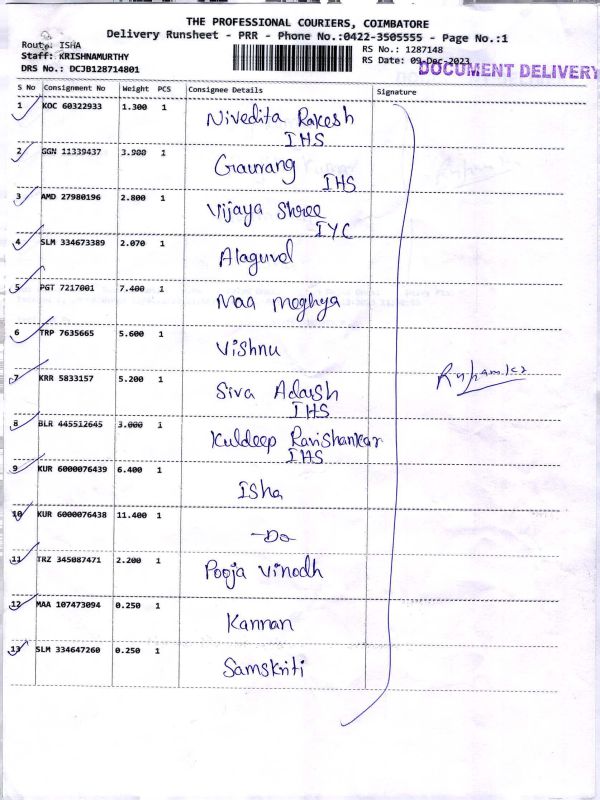 THE PROFESSIONAL COURIERS, COIMBATORE
Delivery Runsheet - PRR - Phone No.:0422-3505555 - Page No.:1
Route: ISHA
RS No.: 1287148
Staff: KRISHNAMURTHY
RS Date: 09-Dec-2023
DRS No.: DCJB128714801
DOCUMENT DELIVERY
S No Consignment No Weight PCS Consignee Details Signature
1 KOC 60322933 1.300 1 Nivedita Rakesh
IHS
2 GGN 11339437 3.900 1 Gaurang
IHS
3 AMD 27980196 2.800 1 Vijaya Shree
IYC
4 SLM 334673389 2.070 1 Alaguvel
5 PGT 7217001 7.400 1 Maa Meghya
6 TRP 7635665 5.600 1 Vishnu
7 KRR 5833157 5.200 1 Siva Adarsh
IHS
8 BLR 445512645 3.000 1 Kuldeep Ravishankar
IHS
9 KUR 6000076439 6.400 1 Isha
10 KUR 6000076438 11.400 1 -Do-
11 TRZ 345087471 2.200 1 Pooja Vinodh
12 MAA 107473094 0.250 1 Kannan
13 SLM 334647260 0.250 1 Samskriti